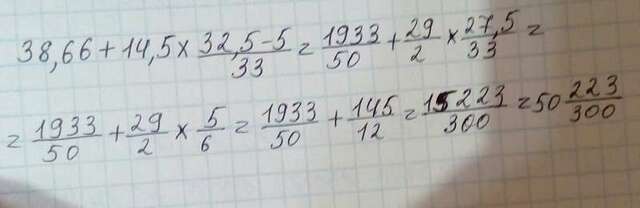 38,66+14,5×(32,5-5)/33 = 1933/50 + 29/2 × 27,5/33 =
= 1933/50 + 29/2 × 5/6 = 1933/50 + 145/12 = 15223/300 = 50 223/300